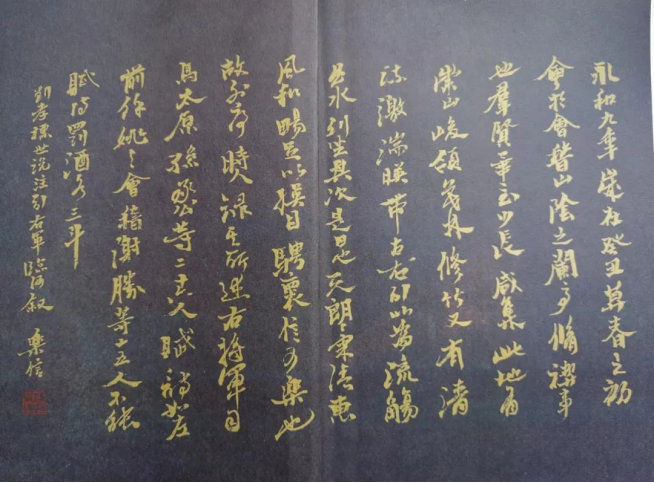 永和九年歲在癸丑莫春之初
會於會稽山陰之蘭亭脩禊事
也羣賢畢至少長咸集此地有
崇山峻領茂林修竹又有清
流激湍暎帶左右引以為流觴
曲水列坐其次是日也天朗氣清惠
風和暢足以娛目騁懷信可樂也
故列序時人錄其所述右將軍司
馬太原孫丞公等二十六人賦詩如左
前餘姚令會稽謝勝等十五人不能
賦詩罰酒各三斗
劉孝標世說注引右軍臨河敘